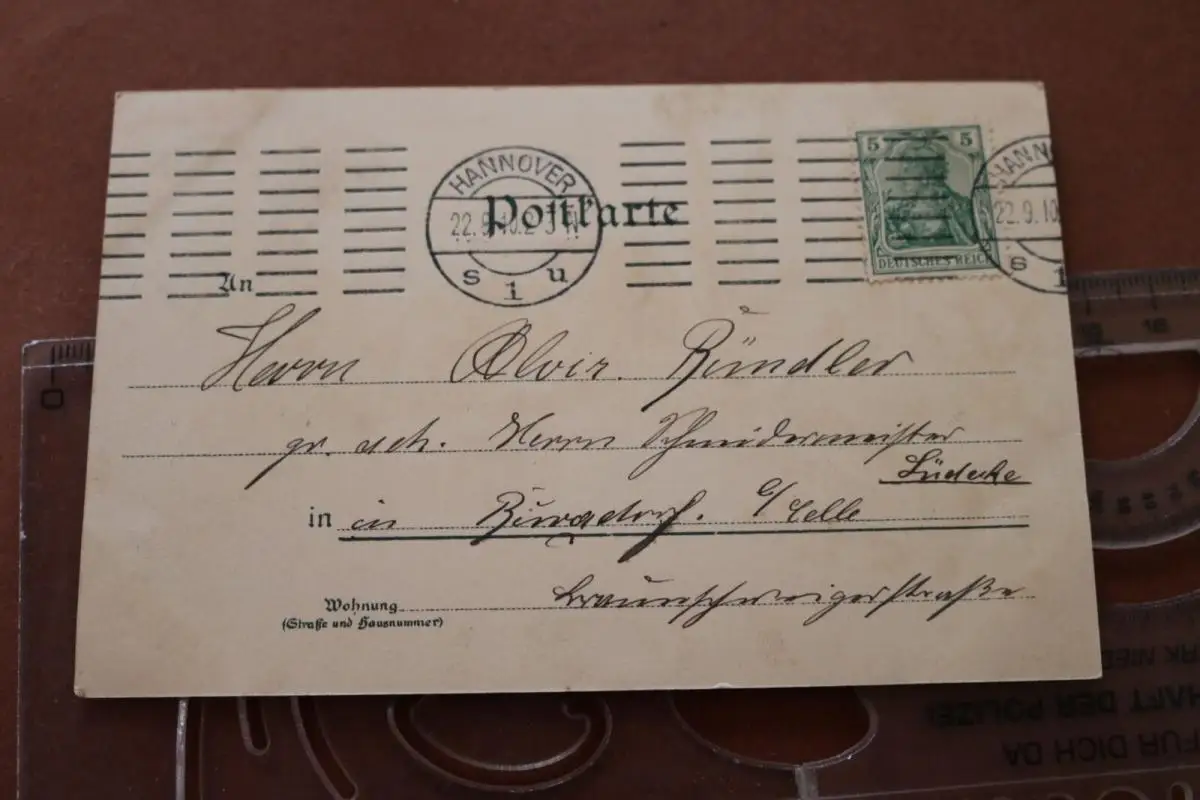 HANNOVER
22.9.10.2-3 N
s 1 u
Postkarte
5 5
DEUTSCHES REICH
HANN
22.9.10
s 1
An
Herrn Alvir. Bündler
gr. adr. Herrn Schneidermeister
Lüdecke
in in Burgdorf. b/Celle
Wohnung Braunschweigerstraße
(Straße und Hausnummer)
HAFT DER POLIZEI
FÜR DICH DA